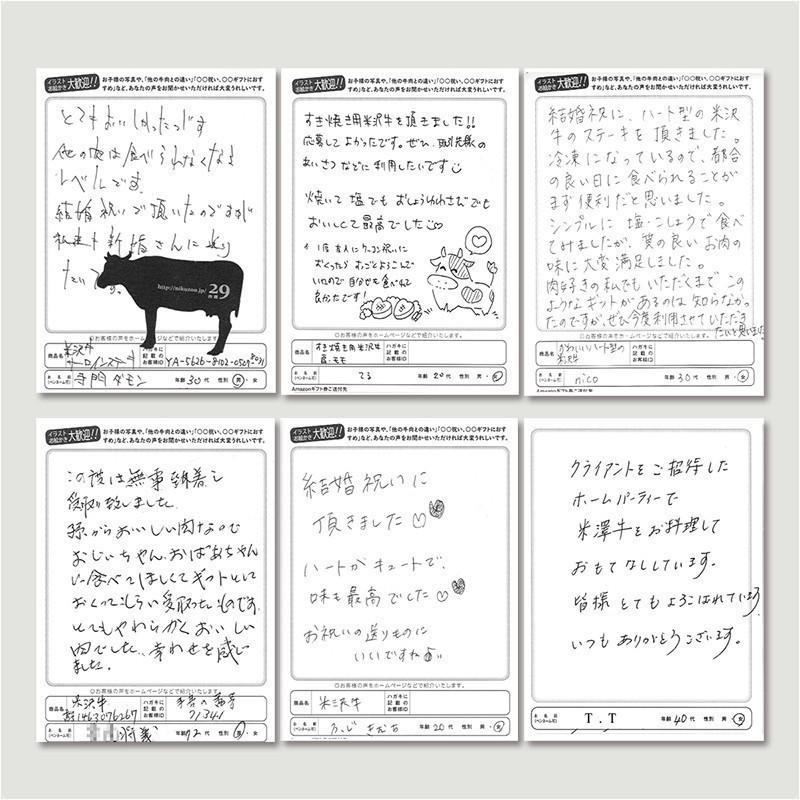 イラスト お絵かき 大歓迎!!
お子様の写真や、「他の牛肉との違い」「〇〇祝い、〇〇ギフトにおすすめ」など、あなたの声をお聞かせいただければ大変うれしいです。
とてもおいしかったです
他の肉は食べられなくなる
レベルです。
結婚祝いで頂いたのですが
新婚さんに送り
たいです。
http://nikuzou.jp/
29
◎お客様の声をホームページなどで紹介いたします。
商品名
米沢牛
サーロインステーキ
ハガキに記載のお客様ID
YA-5626-8102-0529-8031
お名前(ペンネーム可)
寺門ダモン
年齢 30代 性別 男・女
イラスト お絵かき 大歓迎!!
お子様の写真や、「他の牛肉との違い」「〇〇祝い、〇〇ギフトにおすすめ」など、あなたの声をお聞かせいただければ大変うれしいです。
すき焼き用米沢牛を頂きました!!
応募してよかったです。ぜひ、取引先様の
あいさつなどに利用したいです
焼いて塩でもおしょうゆわさびでも
おいしくて最高でした
友人にケッコン祝いに
おくったらすっごとよろこんで
いたので自分も食べれて
良かったです!
◎お客様の声をホームページなどで紹介いたします。
商品名
すき焼き用米沢牛
肩・モモ
ハガキに記載のお客様ID
お名前(ペンネーム可)
てる
年齢 20代 性別 男・女
Amazonギフト券ご送付先
イラスト お絵かき 大歓迎!!
お子様の写真や、「他の牛肉との違い」「〇〇祝い、〇〇ギフトにおすすめ」など、あなたの声をお聞かせいただければ大変うれしいです。
結婚祝に、ハート型の米沢
牛のステーキを頂きました。
冷凍になっているので、都合
の良い日に食べられることが
まず便利だと思いました。
シンプルに塩・こしょうで食べ
てみましたが、質の良いお肉の
味に大変満足しました。
肉好きの私でもいただくまでこの
ようなギフトがあるのは知らなかっ
たのですが、ぜひ今度利用させていただき
たいと思いました
◎お客様の声をホームページなどで紹介いたします。
商品名
かわいいハート型の
米沢牛
ハガキに記載のお客様ID
お名前(ペンネーム可)
nico
年齢 30代 性別 男・女
イラスト お絵かき 大歓迎!!
お子様の写真や、「他の牛肉との違い」「〇〇祝い、〇〇ギフトにおすすめ」など、あなたの声をお聞かせいただければ大変うれしいです。
この度は無事到着し
受取り致しました。
孫からおいしい肉なので
おじいちゃん、おばあちゃん
に食べてほしくてギフトとして
おくってもらい受取ったものです。
とてもやわらかくおいしい
肉でした。幸わせを感じ
ました。
◎お客様の声をホームページなどで紹介いたします。
商品名
米沢牛
1463076267
ハガキに記載のお客様ID
71341
お名前(ペンネーム可)
年齢 72代 性別 男・女
イラスト お絵かき 大歓迎!!
お子様の写真や、「他の牛肉との違い」「〇〇祝い、〇〇ギフトにおすすめ」など、あなたの声をお聞かせいただければ大変うれしいです。
結婚祝いに
頂きました♡
ハートがキュートで、
味も最高でした♡
お祝いの送りものに
いいですね
◎お客様の声をホームページなどで紹介いたします。
商品名
米沢牛
ハガキに記載のお客様ID
お名前(ペンネーム可)
年齢 20代 性別 男・女
クライアントをご招待した
ホームパーティーで
米澤牛をお料理して
おもてなししています。
皆様とてもよろこばれています
いつもありがとうございます。
お名前(ペンネーム可)
T.T
年齢 40代 性別 男・女